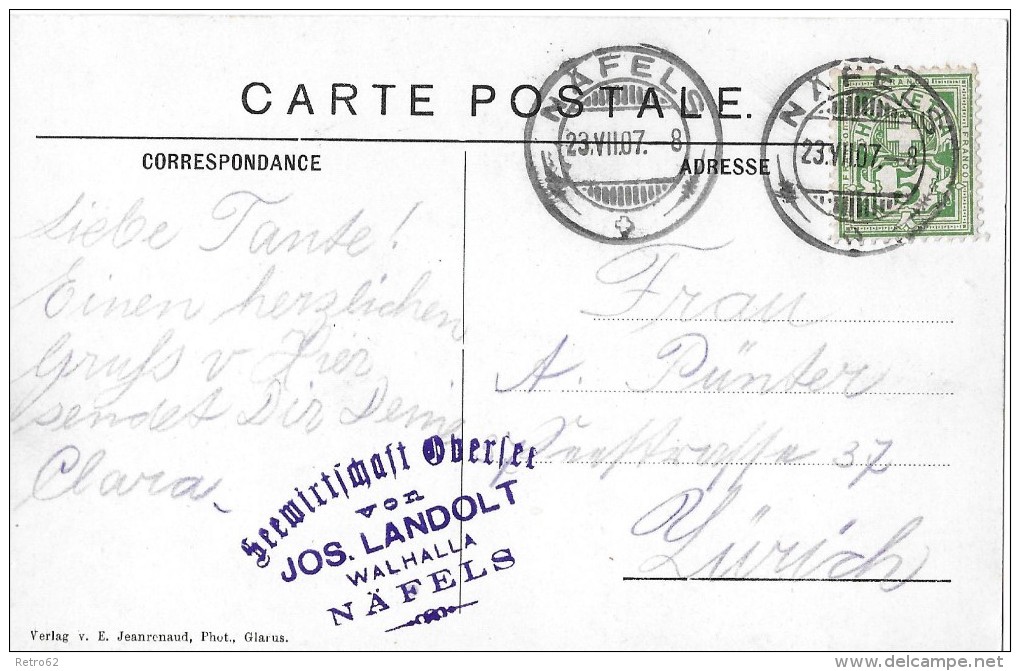 CARTE POSTALE.
NÄFELS
23.VII.07. 8
NÄFELS
23.VII.07. 8
FRANCO
5
CORRESPONDANCE
ADRESSE
Liebe Tante!
Einen herzlichen
Gruss v. Hier
sendet Dir Deine
Clara.
Frau
A. Pünter
Seestrasse 37
Zürich
Seewirtschaft Obersee
von
JOS. LANDOLT
WALHALLA
NÄFELS
Verlag v. E. Jeanrenaud, Phot., Glarus.
Retro62
delcampe.net